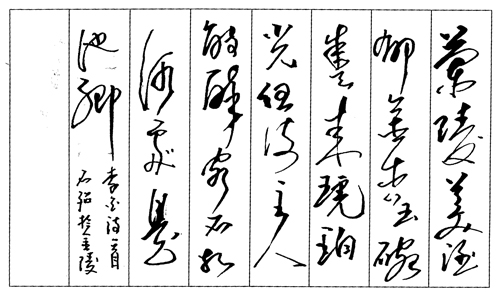 蘭陵美酒
鬱金香玉碗
盛来琥珀
光但使主人
能醉客不知
何處是
他鄉
李白詩一首
石於金陵